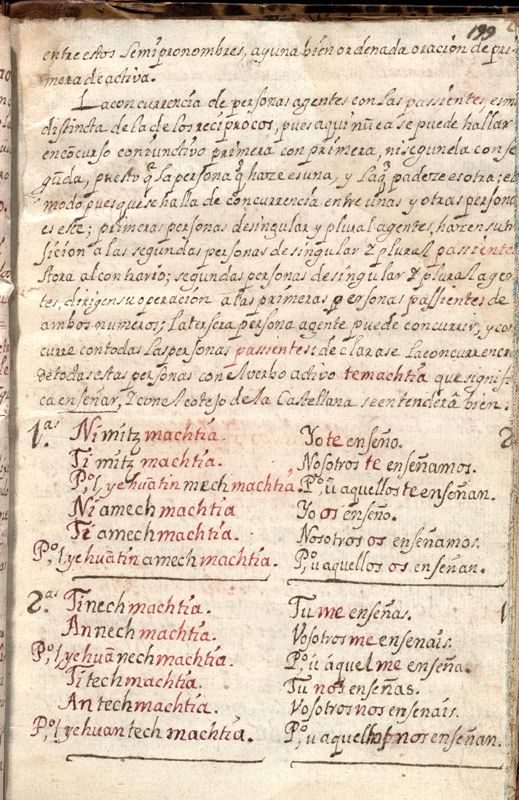 199
entre estos semipronombres, ay una bien ordenada oración de pri-
mera de activa.
La concurrencia de personas agentes con las passientes, es mui
distincta de la de los reciprocos, pues aqui nũca se puede hallar
encõcurso coniunctivo primera con primera, ni segunda con se-
gũda, puesto q̃ la persona q̃ haze es una, y la q̃ padeze es otra; el
modo pues que se halla de concurrencia entre unas y otras personas
es este; primeras personas de singular y plural agentes, hazen su tra
sicion a las segundas personas de singular ⁊ plural passientes
Itora al contrario; segundas personas de singular ⁊ plural agen
tes, dirigen su operacion a las primeras personas passientes de
ambos numeros; la tersera persona agente puede concurrir, y con
curre con todas las personas passientes: declarase la concurrencia
de todas estas personas con el verbo activo temachtia que signifi
ca enseñar, ⁊ con el cotejo de la Castellana se entenderâ bien.
1.as Nimitz machtia. Yo te enseño. 2
Timitz machtia. Nosotros te enseñamos.
P.o, l, yehuãtin mech machtia. P.o, ũ aquellos te enseñan.
Ni amech machtia Yo os enseño.
Ti amech machtia. Nosotros os enseñamos.
P.o, l yehuãtin amech machtia. P.o, u aquellos os enseñan.
2.as Tinech machtia. Tu me enseñas. 1
Annech machtia. Vosotros me enseñais.
P.o, l yehuã nech machtia. P.o, ú áquel me enseña.
Titech machtia. Tu nos enseñas.
An tech machtia. Vosotros nos enseñais.
P.o, l yehuan tech machtia. P.o, u aquellos nos enseñan.